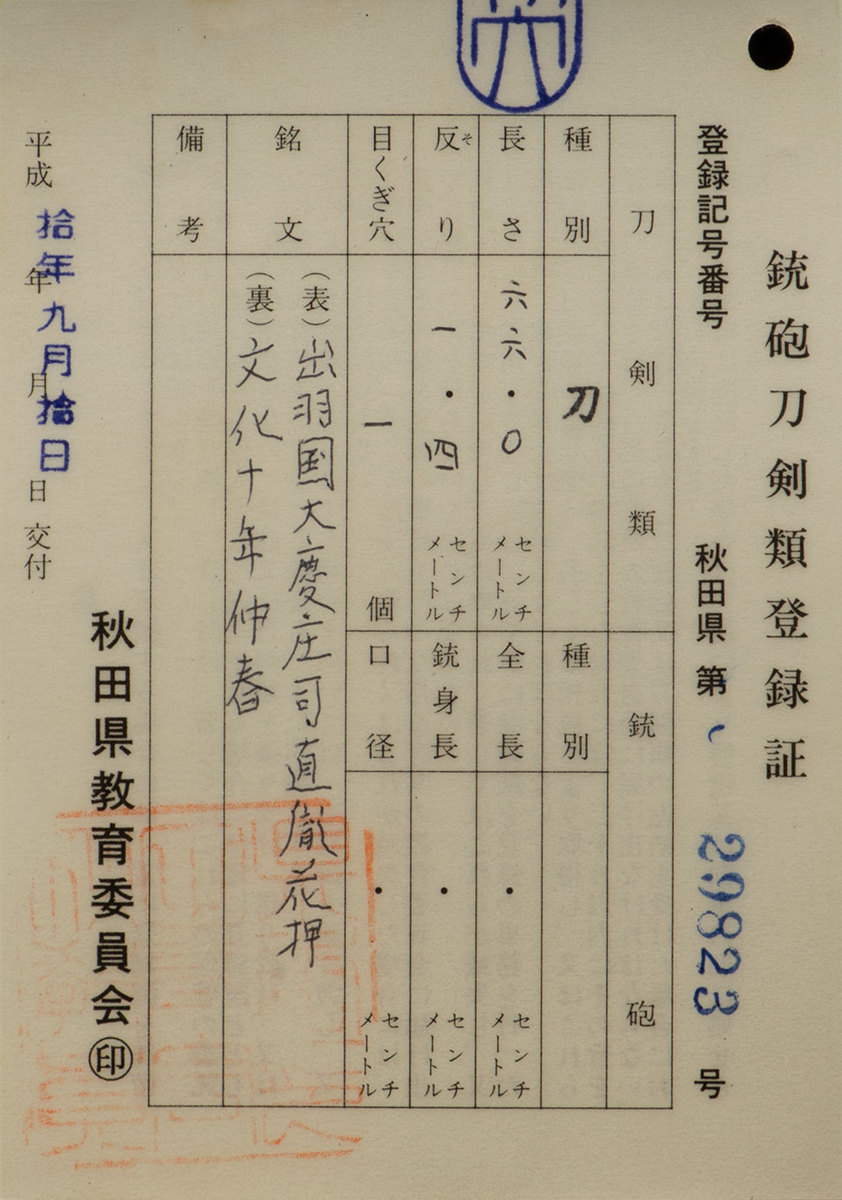 銃砲刀剣類登録証
登録記号番号 秋田県 第 29823 号
刀剣類
銃砲
種別 刀
種別
長さ 六六・〇 センチメートル
全長 ・ センチメートル
反り そ 一・四 センチメートル
銃身長 ・ センチメートル
目くぎ穴 一 個
口径 ・ センチメートル
銘文 (表)出羽国大慶庄司直胤花押
(裏)文化十年仲春
備考
平成 拾年九月拾日 年 月 日 交付
秋田県教育委員会 印